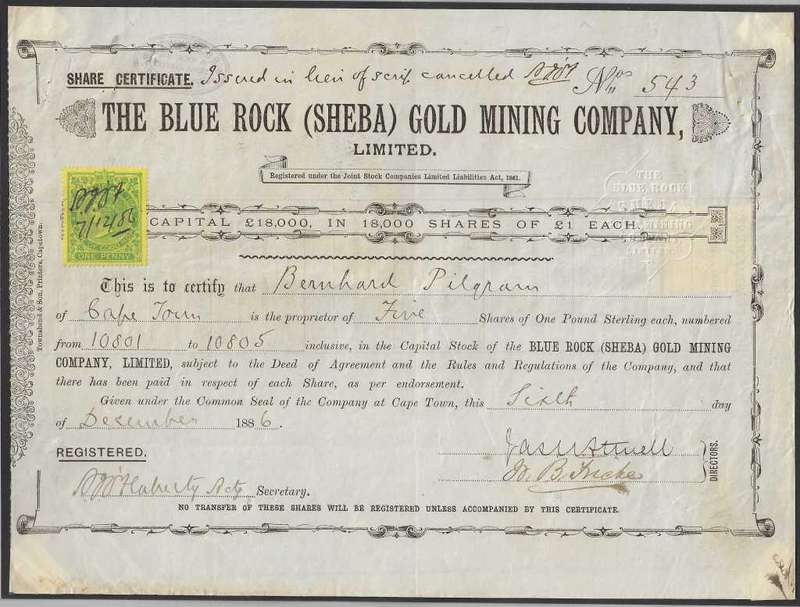 SHARE CERTIFICATE. Issued in lieu of scrip cancelled Nos 543
THE BLUE ROCK (SHEBA) GOLD MINING COMPANY,
LIMITED.
Registered under the Joint Stock Companies Limited Liabilities Act, 1861.
THE
BLUE ROCK
7/12/86
ONE PENNY
CAPITAL £18,000, IN 18,000 SHARES OF £1 EACH.
This is to certify that Bernhard Pilgram
of Cape Town is the proprietor of Five Shares of One Pound Sterling each, numbered
from 10801 to 10805 inclusive, in the Capital Stock of the BLUE ROCK (SHEBA) GOLD MINING
COMPANY, LIMITED, subject to the Deed of Agreement and the Rules and Regulations of the Company, and that
there has been paid in respect of each Share, as per endorsement.
Given under the Common Seal of the Company at Cape Town, this Sixth day
of December 1886.
REGISTERED.
DIRECTORS.
Secretary.
NO TRANSFER OF THESE SHARES WILL BE REGISTERED UNLESS ACCOMPANIED BY THIS CERTIFICATE.
Townshend & Son, Printers, Capetown.